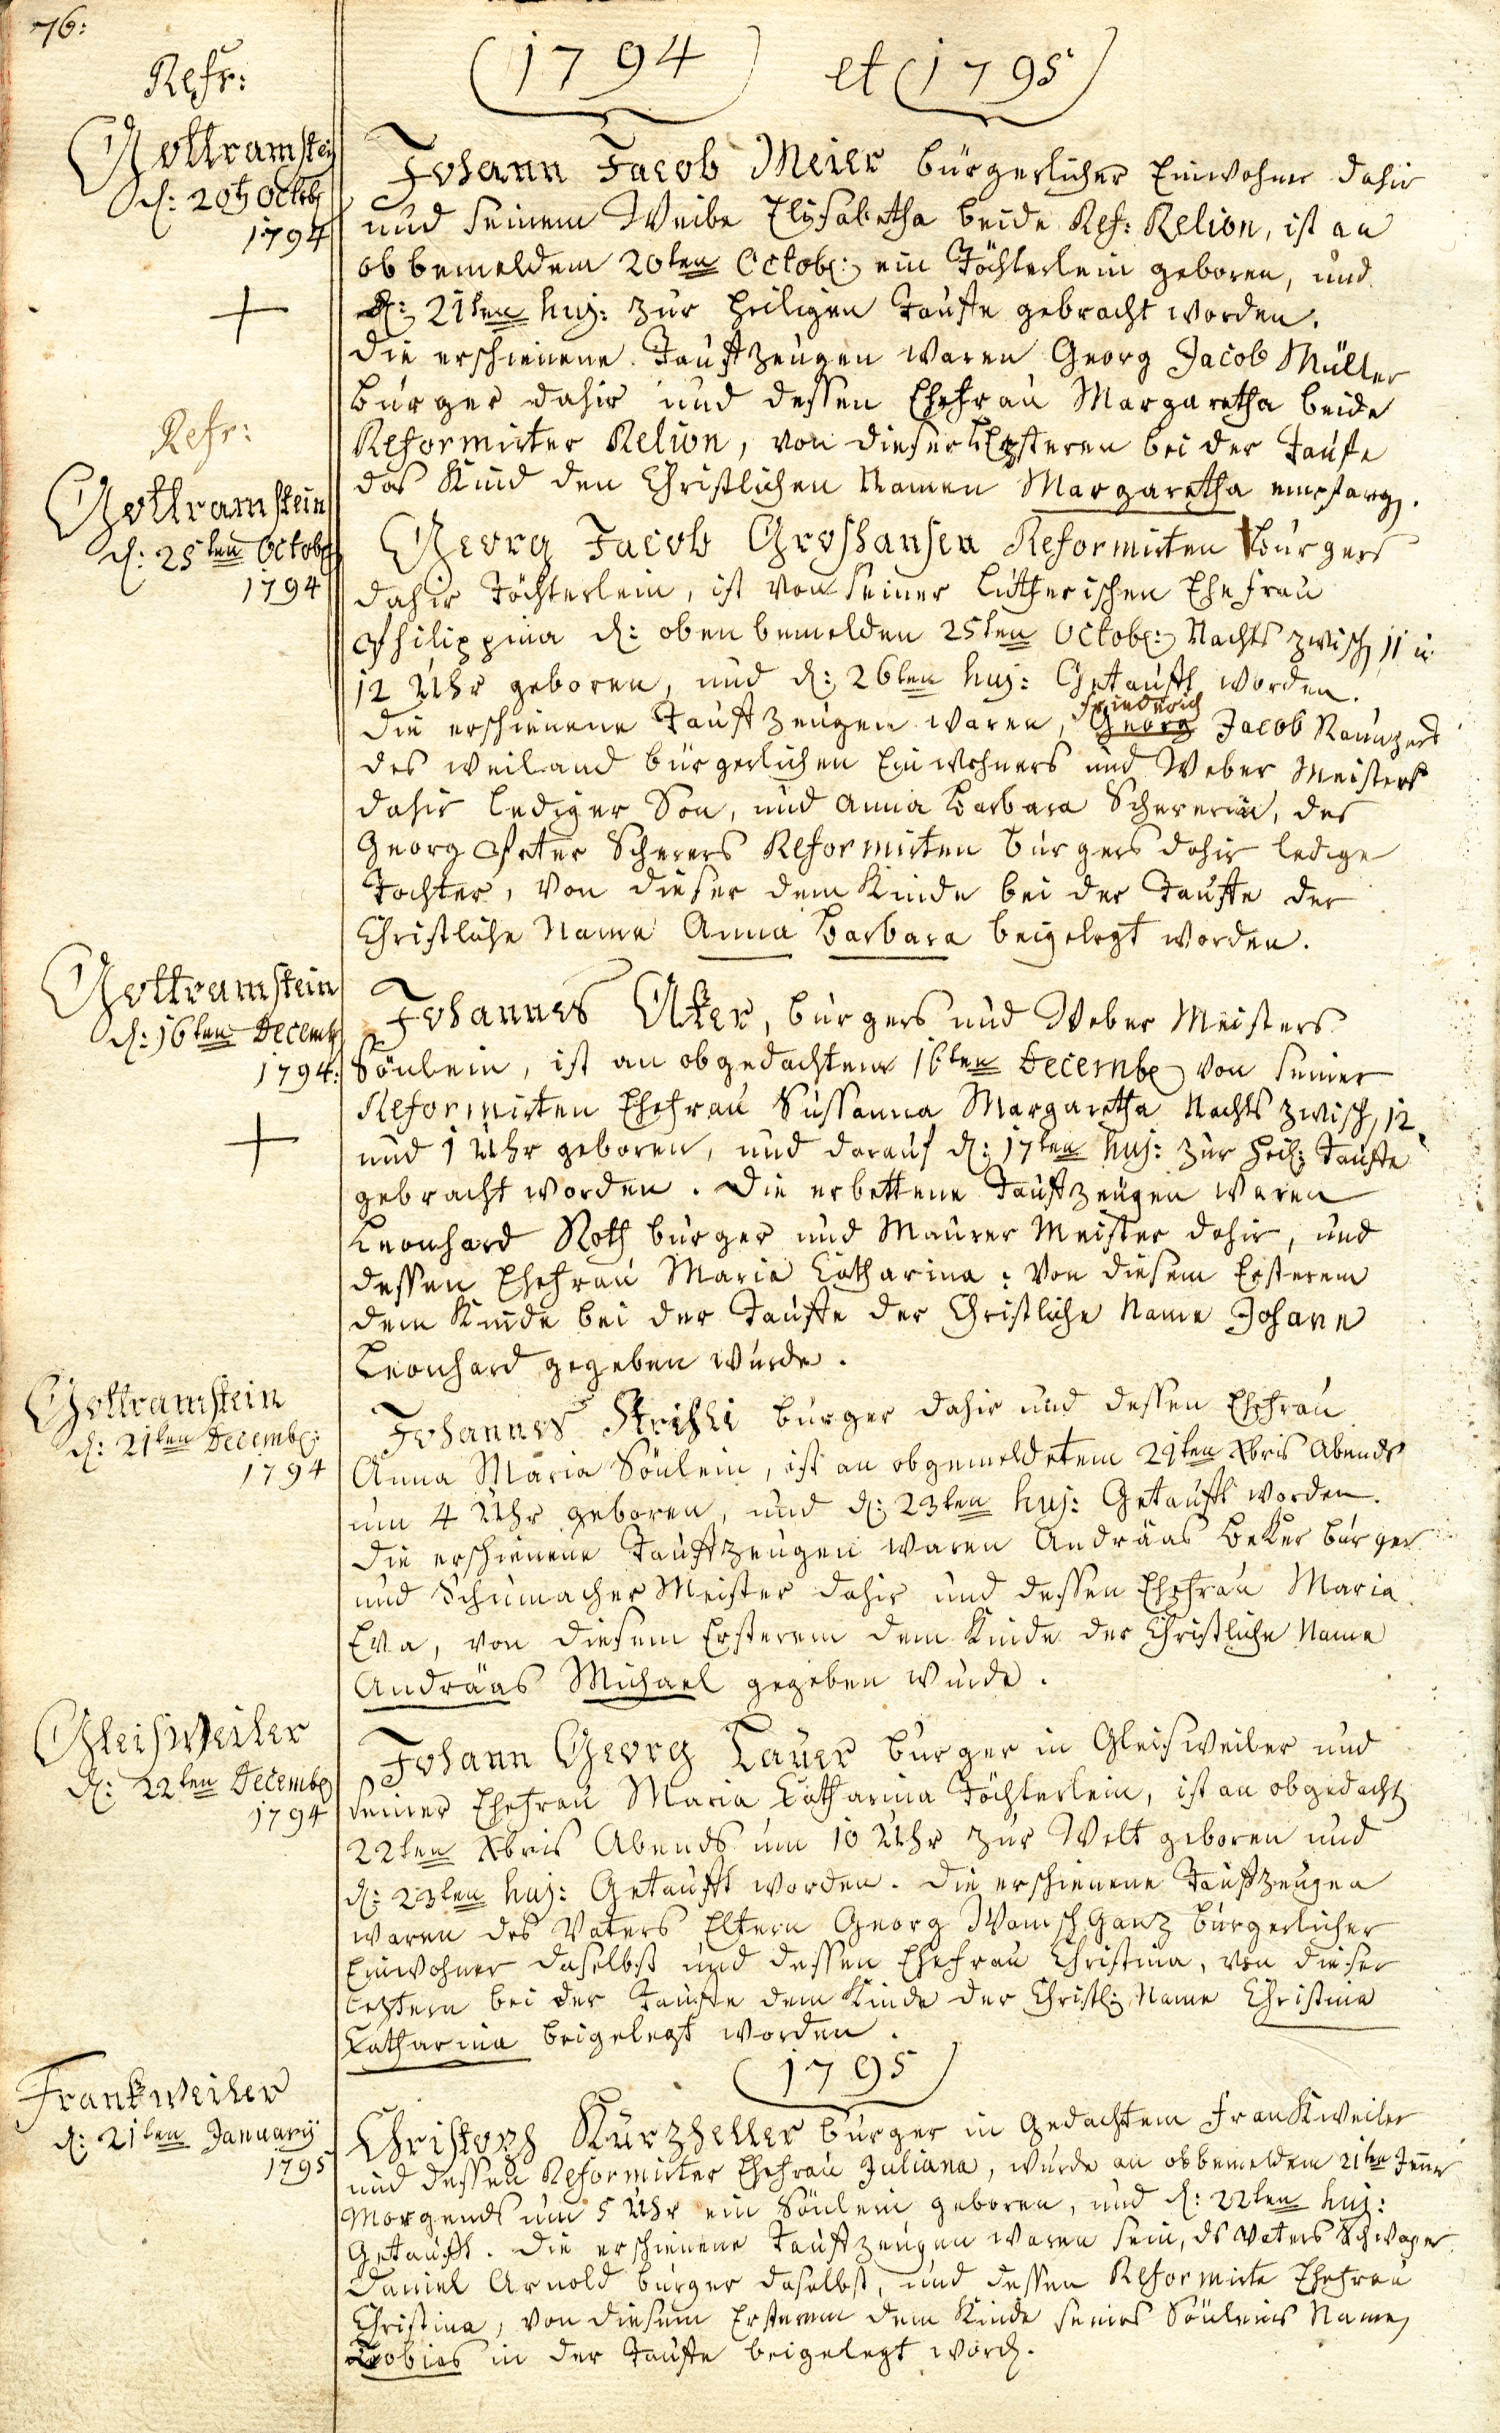 76:
(1794) et (1795)
Refr:
Gottramstein
d: 20t Octob
1794
Johann Jacob Meier bürgerlicher Einwohner dahir
und seinem Weibe Elisabetha beide Ref: Relion, ist an
obbemeldem 20ten Octob: ein Töchterlein geboren, und
d: 21ten huj: zur heiligen Tauffe gebracht worden.
Die erschienene Tauffzeugen waren Georg Jacob Müller
bürger dahir und dessen Ehefrau Margaretha beide
Reformirter Relion, von dieser Lezteren bei der Taufe
das Kind den Christlichen Namen Margaretha empfang.
Refr:
Gottramstein
d: 25ten Octob
1794
Georg Jacob Groshansen Reformirten bürgers
dahir Töchterlein, ist von seiner Lutherischen Ehefrau
Philippina d: oben bemelden 25ten Octob: Nachts zwisch 11 u
12 Uhr geboren, und d: 26ten huj: Getaufft worden.
Friederich
Die erschienene Tauffzeugen waren, Georg Jacob
des weiland bürgerlichen Einwohners und Weber Meisters
dahir lediger Son, und Anna Barbara Schererin, des
Georg Peter Scherers Reformirten bürgers dahir ledige
Tochter, von dieser dem Kinde bei der Tauffe der
Christliche Name Anna Barbara beigelegt worden.
Gottramstein
d: 16ten Decemb
1794:
Johannes Aker, bürgers und Weber Meisters
Sönlein, ist an obgedachtem 16ten Decemb von seiner
Reformirten Ehefrau Sussanna Margaretha Nachts zwisch 12
und 1 Uhr geboren, und darauf d: 17ten huj: zur heil: Tauffe
gebracht worden. Die erbettene Tauffzeugen waren
Leonhard Roth bürger und Maurer Meister dahir, und
dessen Ehefrau Maria Catharina: Von diesem Ersterem
dem Kinde bei der Tauffe der Christliche Name Johann
Leonhard gegeben wurde.
Gottramstein
d: 21ten Decemb:
1794
Johannes bürger dahir und dessen Ehefrau
Anna Maria Sönlein, ist an obgemeldetem 21ten Xbris Abends
um 4 Uhr geboren, und d: 23ten huj: Getaufft worden.
Die erschienene Tauffzeugen waren Andräas Beker bürger
und Schumacher Meister dahir und dessen Ehefrau Maria
Eva, von diesem Ersterem dem Kinde der Christliche Name
Andräas Michael gegeben wurde.
Gleisweiler
d: 22ten Decemb
1794
Johann Georg Lauer bürger in Gleisweiler und
seiner Ehefrau Maria Catharina Töchterlein, ist an obgedacht
22ten Xbris Abends um 10 Uhr zur Welt geboren und
d: 23ten huj: Getaufft worden. Die erschienene Tauffzeugen
waren des Vaters Eltern Georg bürgerlicher
Einwohner daselbst und dessen Ehefrau Christina, von dieser
leztern bei der Tauffe dem Kinde der Christl: Name Christina
Catharina beigelegt worden.
(1795)
Frankweiler
d: 21ten Januarij
1795
Christoph Kurzheller bürger in Gedachtem Frankweiler
und dessen Reformirter Ehefrau Juliana, wurde an obbemeldem 21ten Jenner
Morgends um 5 Uhr ein Sönlein geboren, und d: 22ten huj:
Getaufft. Die erschienene Tauffzeugen waren sein, ds Vaters Schwager
Daniel Arnold bürger daselbst, und dessen Reformirte Ehefrau
Christina, von diesem Ersterem dem Kinde seines Sönleins Name,
Tobias in der Tauffe beigelegt word.